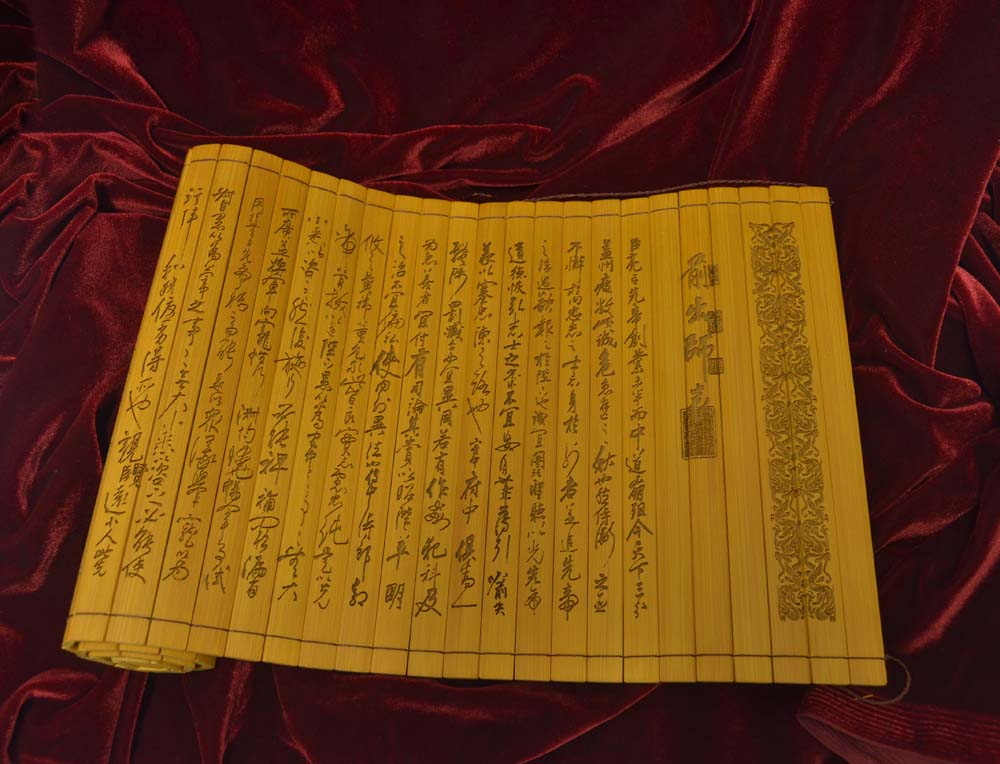 前出師表
臣亮言先帝創業未半而中道崩殂今天下三分
益州疲敝此誠危急存亡之秋也然侍衛之臣
不懈於內忠志之士忘身於外者蓋追先帝
之殊遇欲報之於陛下也誠宜開張聖聽以光先帝
遺德恢弘志士之氣不宜妄自菲薄引喻失
義以塞忠諫之路也宮中府中俱為一
體陟罰臧否不宜異同若有作姦犯科及
為忠善者宜付有司論其刑賞以昭陛下平明
之治不宜偏私使內外異法也侍中侍郎郭
攸之費禕董允等此皆良實志慮忠純是以先
帝簡拔以遺陛下愚以為宮中之事事無大
小悉以咨之然後施行必能裨補闕漏有
所廣益將軍向寵性行淑均曉暢軍事試
用於昔日先帝稱之曰能是以眾議舉寵為
督愚以為營中之事事無大小悉以咨之必能使
行陣和穆優劣得所也親賢遠小人此